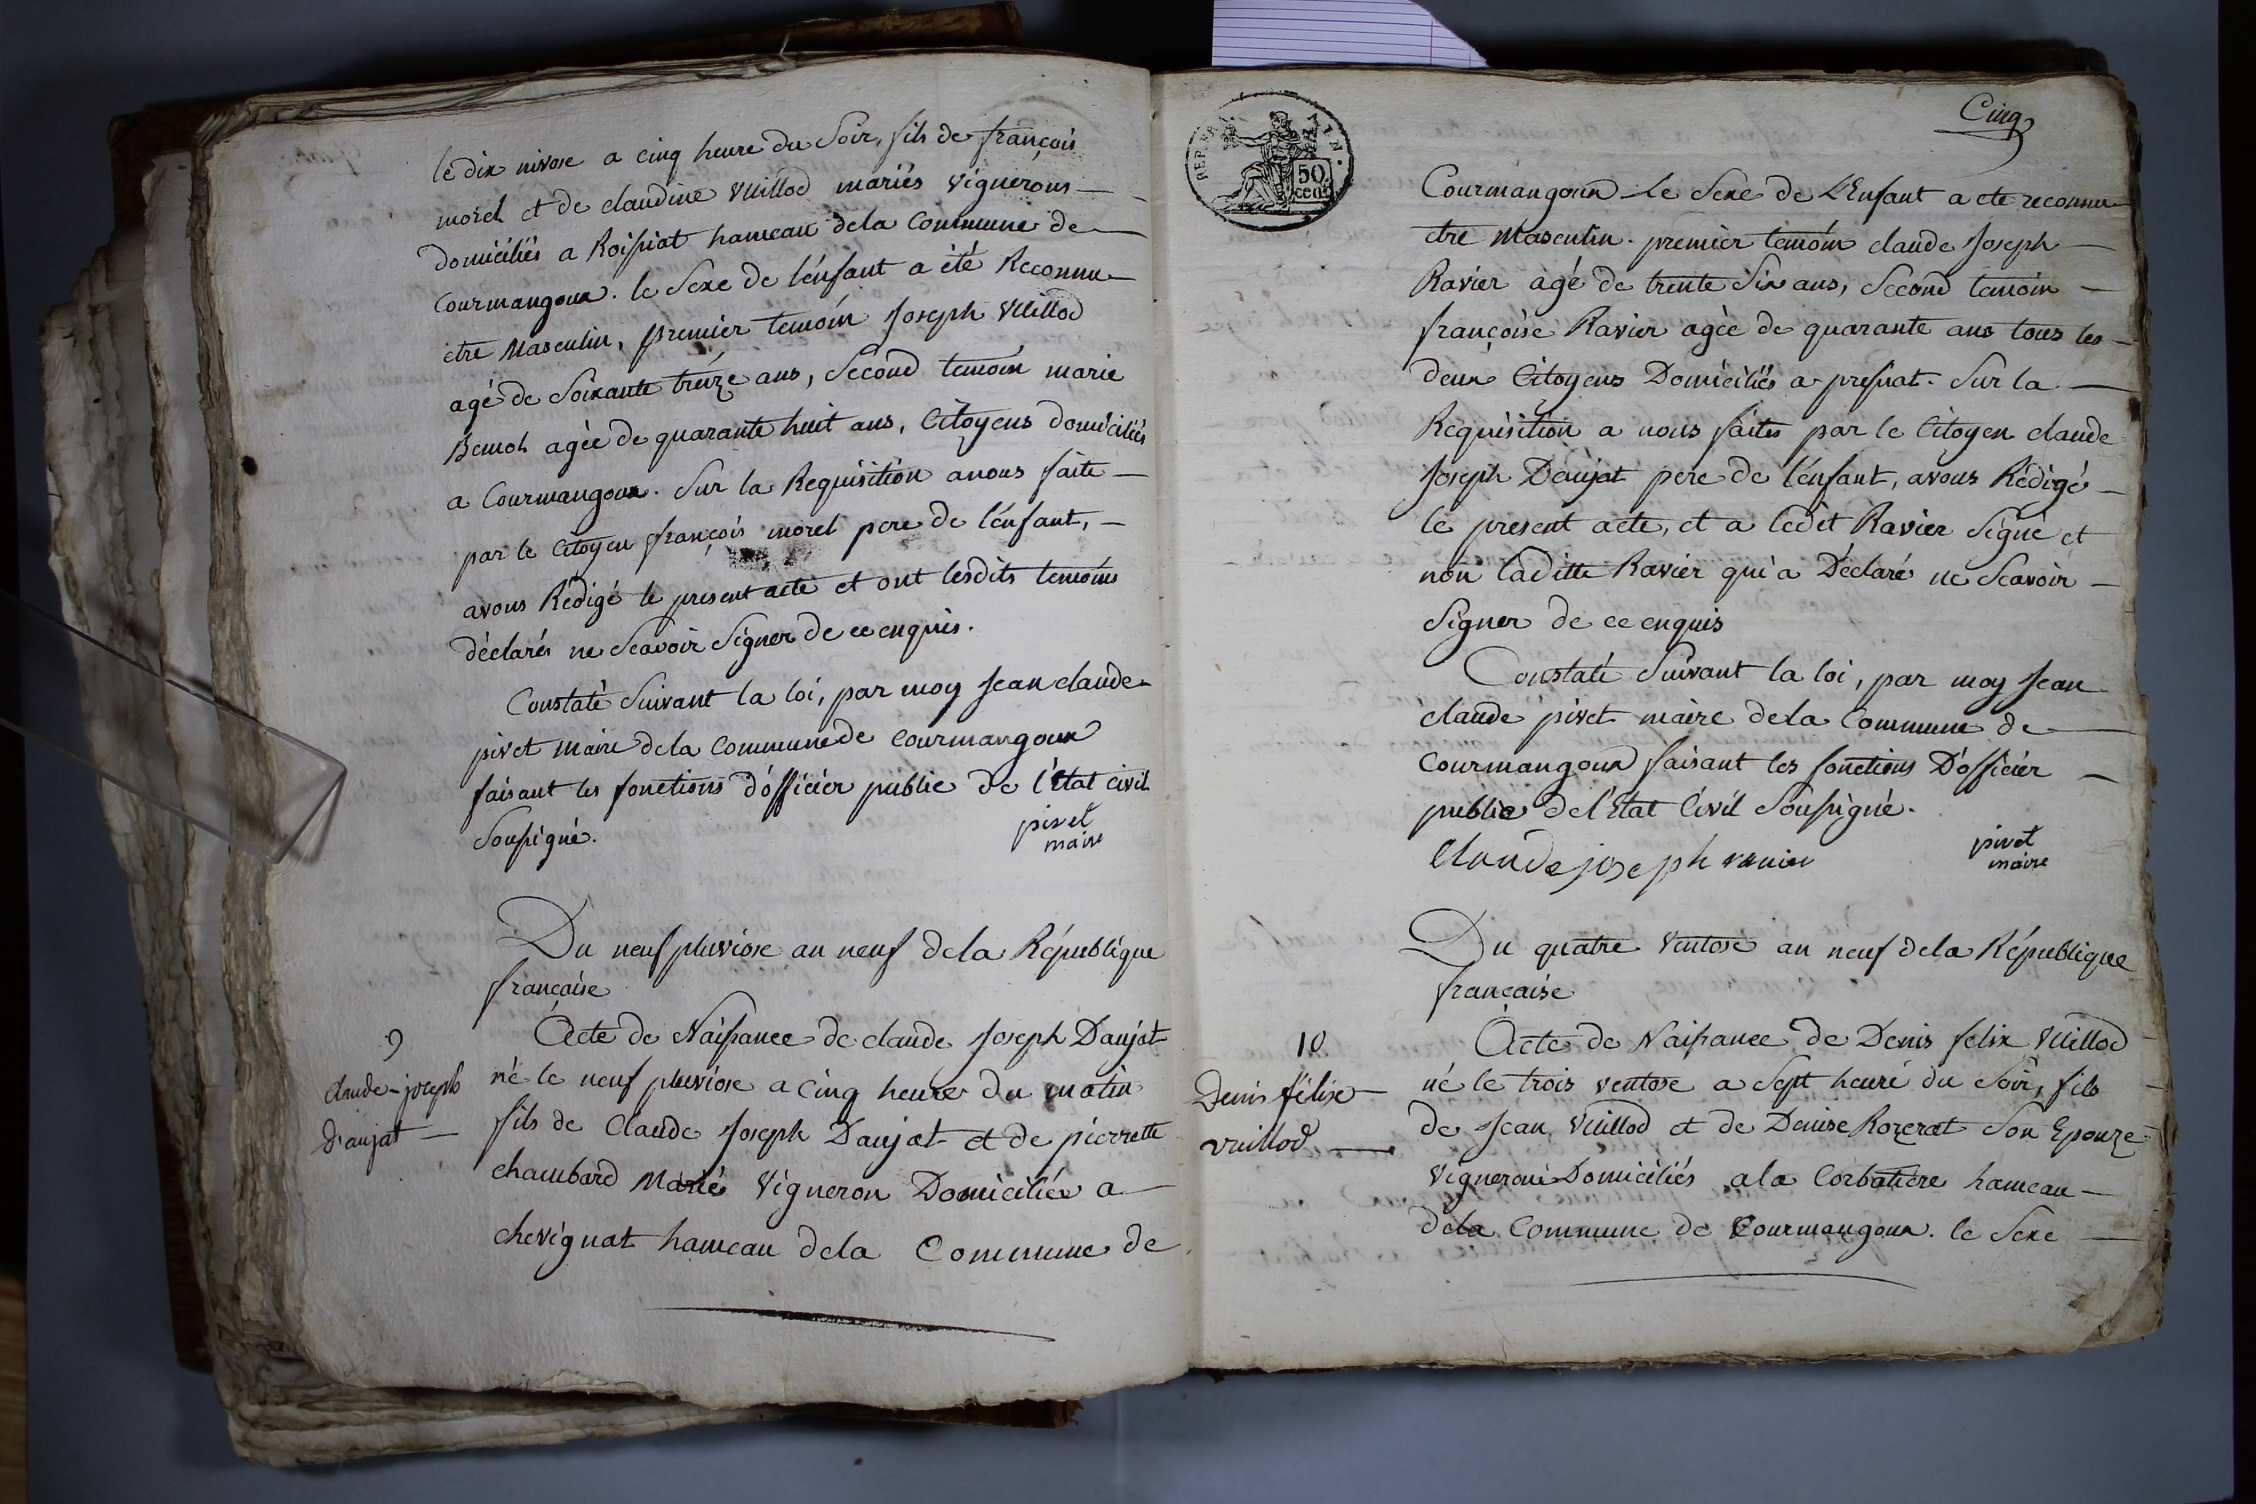 le dix nivose a cinq heure du Soir, fils de françois
morel et de claudine Vuillod mariés vignerons
domiciliés a Roissiat hameau dela Commune de
Courmangoux. le Sexe de l'énfant a été Reconnu
etre Masculin, premier temoin Joseph Vuillod
agé de Soixante treize ans, Second temoin marie
agée de quarante huit ans, Citoyens domiciliés
a Courmangoux. Sur la Requisition a nous faite
par le Citoyen françois morel pere de l'énfant,
avons Rédigé le present acte et ont lesdits temoins
déclarés ne Scavoir Signer de ce enquis.
Constaté Suivant la loi, par moy Jean claude
pivet maire dela Commune de Courmangoux
faisant les fonctions d'officier public de l'Etat civil
Soussigné.
pivet
maire
Du neuf pluviose an neuf dela République
francaise
9
claude-joseph
d'aujat
Acte de Naissance de claude Joseph Daujat
né le neuf pluviose a cinq heure du matin
fils de Claude Joseph Daujat et de pierrette
chambard Mariés Vigneron Domiciliés a
chevignat hameau dela Commune de
Cinq
REP. FRA
50
cent
Courmangoux Le Sexe de L'Enfant a ete reconnu
etre Masculin. premier temoin claude Joseph
Ravier agé de trente Six ans, Second temoin
françoise Ravier agée de quarante ans tous les
deux Citoyens Domiciliés a pressiat. Sur la
Requisition a nous faites par le Citoyen claude
Joseph Daujat pere de l'énfant, avons Rédigé
le present acte, et a ledit Ravier Signé et
non laditte Ravier qui a Déclaré ne Scavoir
Signer de ce enquis
Constaté Suivant la loi, par moy Jean
claude pivet maire dela Commune de
Courmangoux faisant les fonctions D'officier
public de l'Etat Civil Soussigné.
Claude joseph ravier
pivet
maire
Du quatre Ventose an neuf dela République
francaise
10
Denis félix
vuillod
Acte de Naissance de Denis felix Vuillod
né le trois ventose a Sept heure du Soir, fils
de Jean Vuillod et de Denise Rozerat Son Epouze
Vignerons Domiciliés a la Corbatiere hameau
dela Commune de Courmangoux. le Sexe